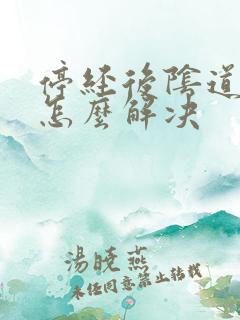 停经後陰道
怎麼解决
湯曉燕
未经同意禁止转载